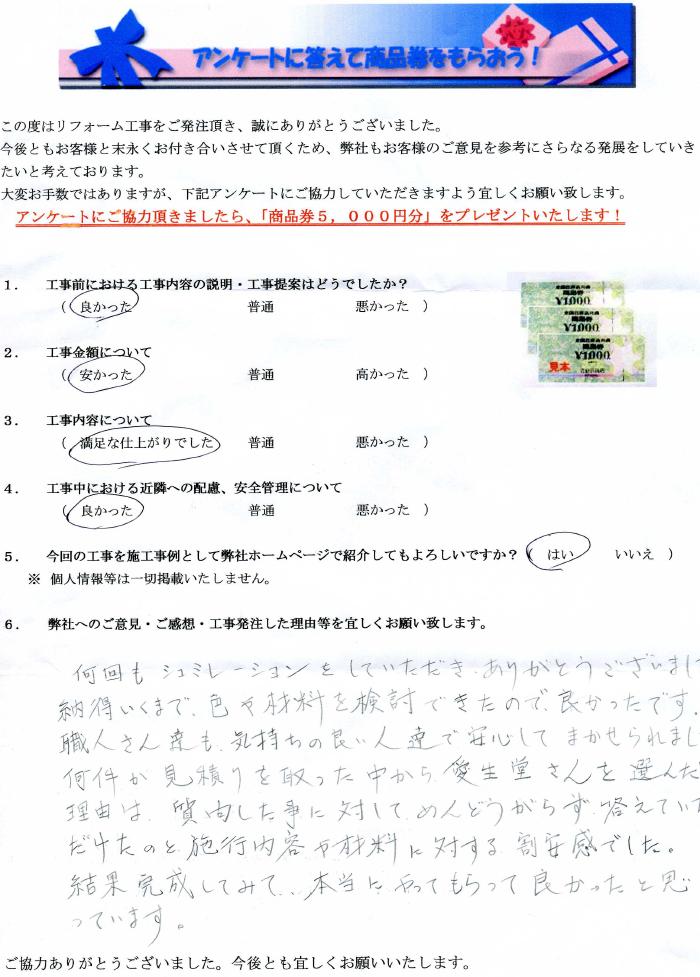 アンケートに答えて商品券をもらおう！
この度はリフォーム工事をご発注頂き、誠にありがとうございました。
今後ともお客様と末永くお付き合いさせて頂くため、弊社もお客様のご意見を参考にさらなる発展をしていき
たいと考えております。
大変お手数ではありますが、下記アンケートにご協力していただきますよう宜しくお願い致します。
アンケートにご協力頂きましたら、「商品券５，０００円分」をプレゼントいたします！
１．　工事前における工事内容の説明・工事提案はどうでしたか？
（　良かった　　普通　　悪かった　）
¥1,000
¥1,000
¥1,000
見本
２．　工事金額について
（　安かった　　普通　　高かった　）
３．　工事内容について
（　満足な仕上がりでした　　普通　　悪かった　）
４．　工事中における近隣への配慮、安全管理について
（　良かった　　普通　　悪かった　）
５．　今回の工事を施工事例として弊社ホームページで紹介してもよろしいですか？（　はい　　いいえ　）
※ 個人情報等は一切掲載いたしません。
６．　弊社へのご意見・ご感想・工事発注した理由等を宜しくお願い致します。
何回も シュミレーションをしていただき、ありがとうございまし
納得いくまで、色や材料を検討できたので、良かったです。
職人さん達も、気持ちの良い人達で安心して まかせられまし
何件か見積りを取った中から、愛生堂さんを選んだ
理由は、質問した事に対して、めんどうがらず、答えてい
だけたのと、施行内容や材料に対する割安感でした。
結果、完成してみて、本当に、やってもらって良かったと思
っています。
ご協力ありがとうございました。今後とも宜しくお願いいたします。